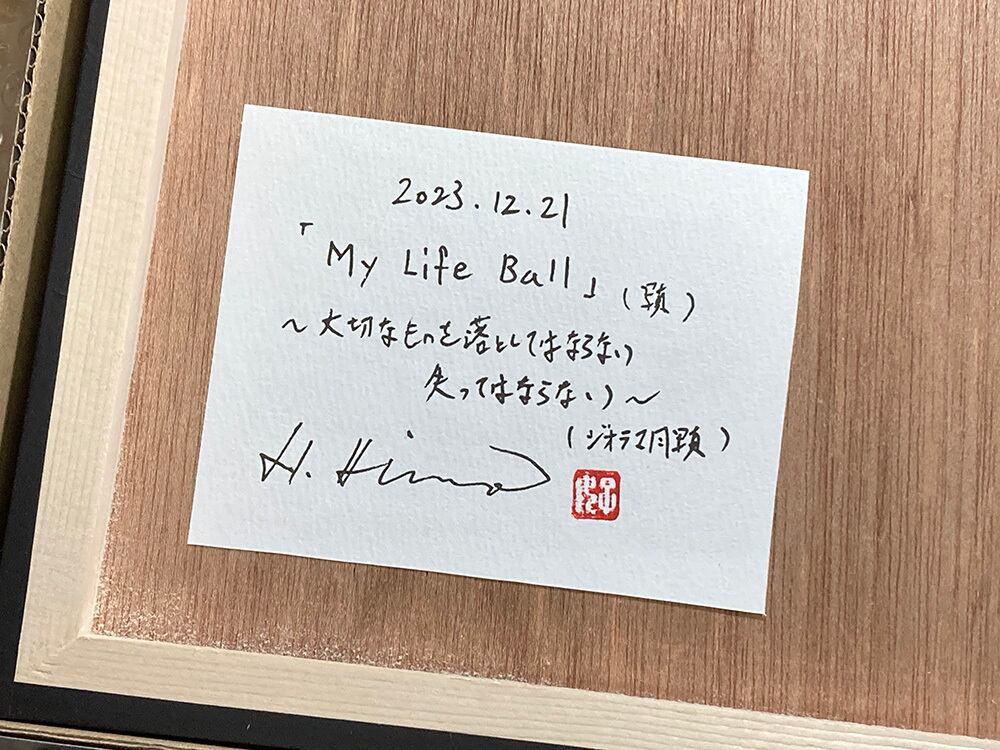 2023.12.21
「My Life Ball」
〜大切なものを落としてはならない
失ってはならない〜
(ジオラマ
H.